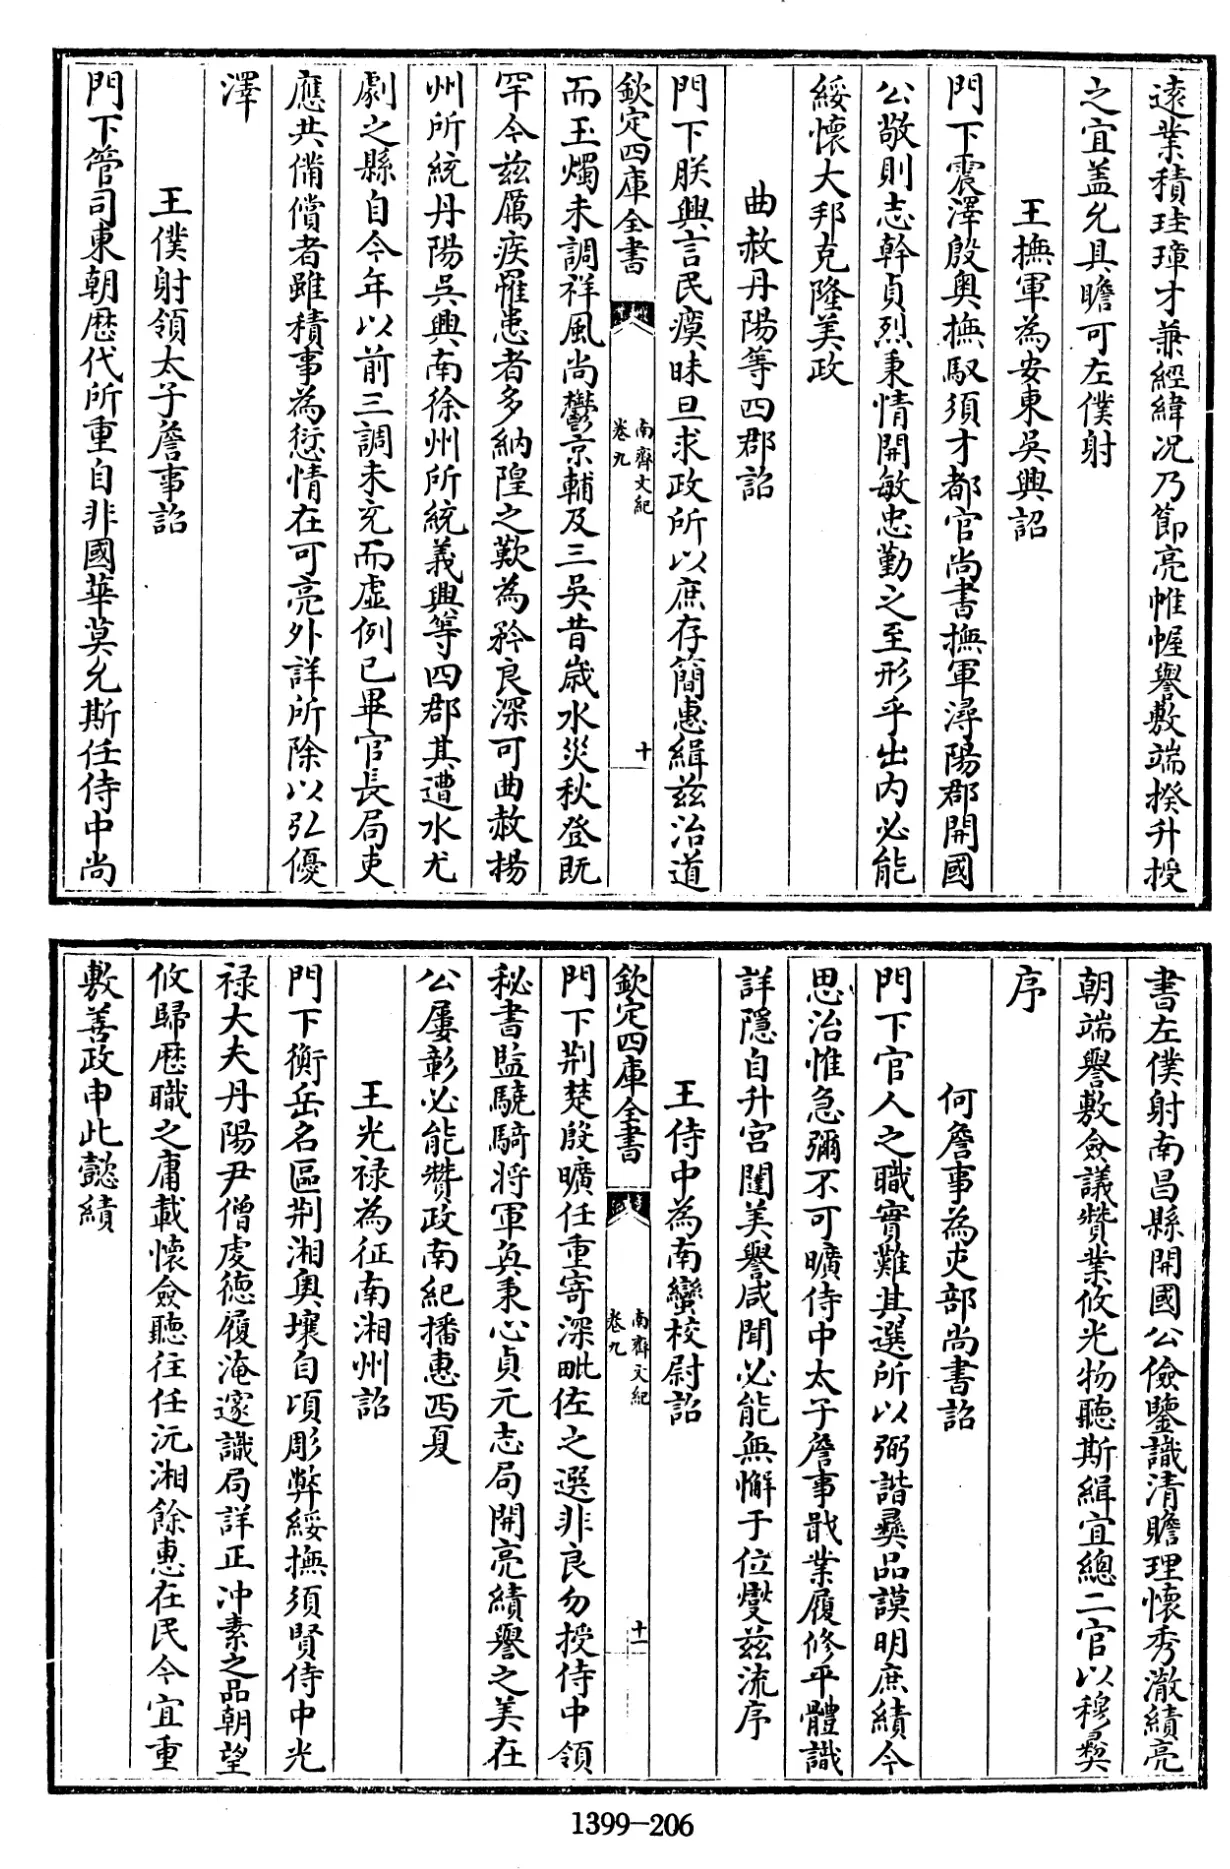 遠業積珪璋才兼經緯况乃節亮帷幄譽敷端揆升授
之宜盖允具瞻可左僕射
王撫軍為安東吳興詔
門下震澤殷奥撫馭須才都官尚書撫軍潯陽郡開國
公敬則志幹貞烈秉情開敏忠勤之至形乎出内必能
綏懷大邦克隆美政
曲赦丹陽等四郡詔
門下朕興言民瘼昧旦求政所以庶存簡惠緝兹治道
欽定四庫全書
南齊文紀
卷九
十
而玉燭未調祥風尚鬱京輔及三吳昔歲水災秋登既
罕今兹厲疾罹患者多納隍之歎為矜良深可曲赦揚
州所統丹陽吳興南徐州所統義興等四郡其遭水尤
劇之縣自今年以前三調未充而虛例已畢官長局吏
應共備償者雖積事為愆情在可亮外詳所除以弘優
澤
王僕射領太子詹事詔
門下管司東朝歴代所重自非國華莫允斯任侍中尚
書左僕射南昌縣開國公儉鑒識清贍理懷秀澈績亮
朝端譽敷僉議贊業攸光物聽斯緝宜總二官以穆彞
序
何詹事為吏部尚書詔
門下官人之職實難其選所以弼諧彞品謨明庶績今
思治惟急彌不可曠侍中太子詹事戢業履修平體識
詳隱自升宫闈美譽咸聞必能無懈于位燮兹流序
王侍中為南蠻校尉詔
欽定四庫全書
南齊文紀
卷九
十一
門下荆楚殷曠任重寄深毗佐之選非良勿授侍中領
秘書監驍騎將軍奐秉心貞元志局開亮績譽之美在
公屢彰必能贊政南紀播惠西夏
王光禄為征南湘州詔
門下衡岳名區荆湘奥壤自頃彫弊綏撫須賢侍中光
禄大夫丹陽尹僧虔德履淹邃識局詳正冲素之品朝望
攸歸歴職之庸載懷僉聽往任沅湘餘惠在民今宜重
敷善政申此懿績
1399-206